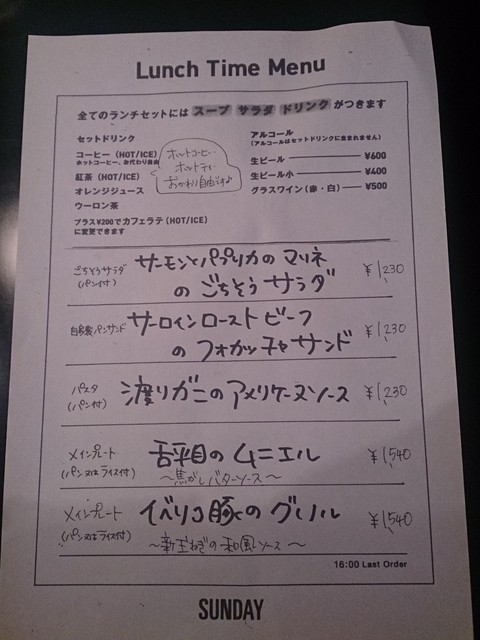 Lunch Time Menu
全てのランチセットには スープ サラダ ドリンク がつきます
セットドリンク
コーヒー (HOT/ICE)
ホットコーヒー、お代わり自由
紅茶 (HOT/ICE)
オレンジジュース
ウーロン茶
プラス¥200でカフェラテ (HOT/ICE)
に変更できます
ホットコーヒー
ホットティー
おかわり自由です♪
アルコール
(アルコールはセットドリンクに含まれません)
生ビール ¥600
生ビール小 ¥400
グラスワイン (赤・白) ¥500
ごちそうサラダ
(パン付)
サーモンとパプリカのマリネ
のごちそうサラダ
¥1,230
自家製パンサンド
サーロインローストビーフ
のフォカッチャサンド
¥1,230
パスタ
(パン付)
渡りガニのアメリケーヌソース
¥1,230
メインプレート
(パン又はライス付)
舌平目のムニエル
〜焦がしバターソース〜
¥1,540
メインプレート
(パン又はライス付)
イベリコ豚のグリル
〜新玉ねぎの和風ソース〜
¥1,540
16:00 Last Order
SUNDAY